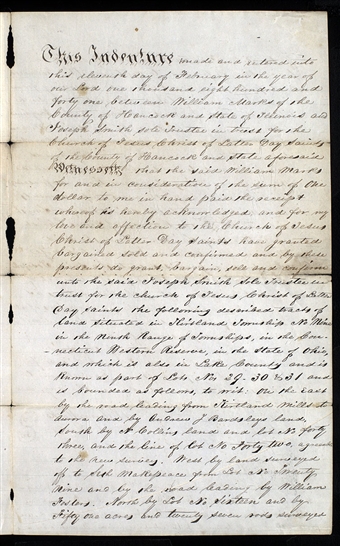 This Indenture made and entered into
this eleventh day of February in the year of
our Lord one thousand eight hundred and
forty one between William Marks of the
County of Hancock and State of Illinois and
Joseph Smith sole Trustee in trust for the
Church of Jesus Christ of Latter Day Saints
of the County of Hancock and State aforesaid
Witnesseth, that the said William Marks
for and in consideration of the sum of One
dollar to me in hand paid the receipt
whereof is hereby acknowledged and for my
love and affection to the Church of Jesus
Christ of Latter Day Saints have granted
bargained sold and confirmed and by these
presents do grant, bargain, sell and confirm
unto the said Joseph Smith Sole Trustee in
trust for the church of Jesus Christ of Latter
Day Saints the following described tracts of
land situated in Kirtland Township No Nine
in the Ninth Range of Townships, in the Con-
necticut Western Reserve, in the State of Ohio,
and which is also in Lake County and is
known as part of Lots No 29. 30 & 31 and
is bounded as follows, to wit. On the East
by the road leading from Kirtland Mills to
and by Andrew land,
South by Collins land and Lot No forty
three, and the line of Lot No Forty two, agreeable
to the new survey. West by land surveyed
off to from Lot No Twenty
Nine and by the road leading by William
Fosters. North by Lot No Sixteen and by
Fifty one acres and twenty seven rods surveyed